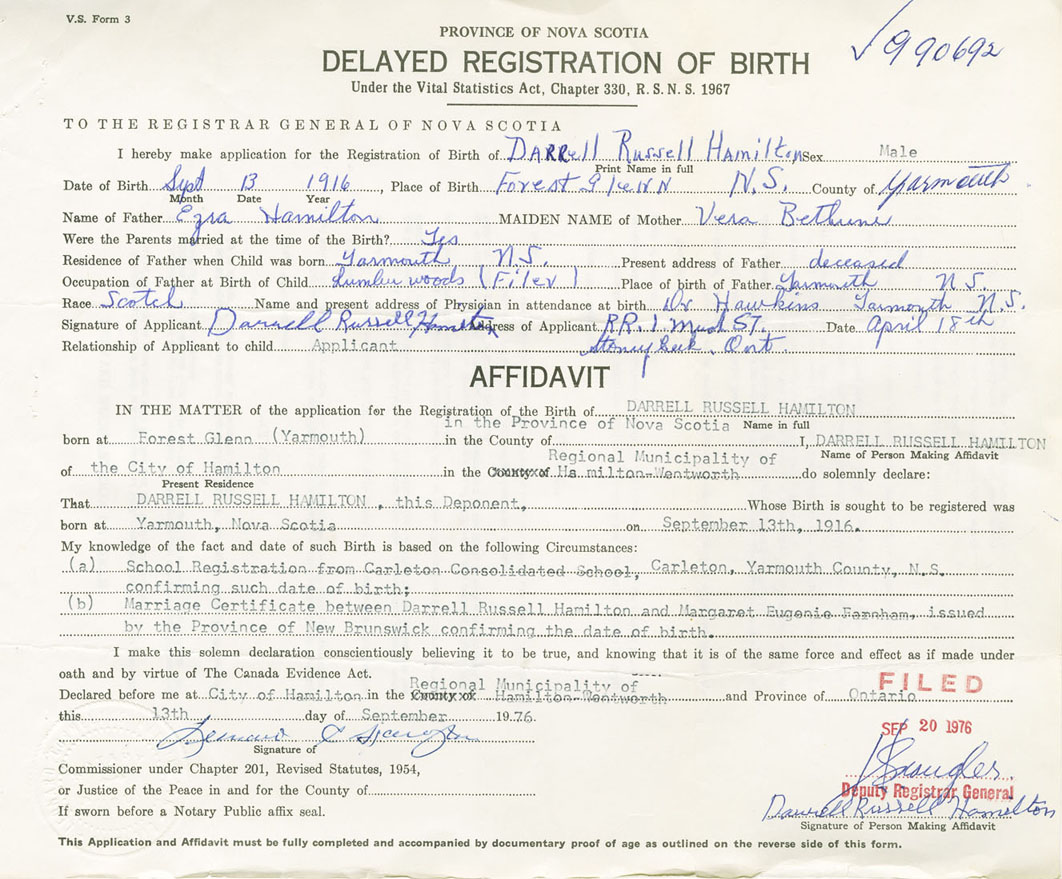 V.S. Form 3
PROVINCE OF NOVA SCOTIA
990692
DELAYED REGISTRATION OF BIRTH
Under the Vital Statistics Act, Chapter 330, R.S.N.S. 1967
TO THE REGISTRAR GENERAL OF NOVA SCOTIA
I hereby make application for the Registration of Birth of DARRell Russell Hamilton Sex Male
Print Name in full
Date of Birth Sept 13 1916, Place of Birth Forest Glenn N.S. County of Yarmouth
Month Date Year
Name of Father Ezra Hamilton MAIDEN NAME of Mother Vera Bethune
Were the Parents married at the time of the Birth? Yes
Residence of Father when Child was born Yarmouth N.S. Present address of Father deceased
Occupation of Father at Birth of Child Lumber woods (Filer) Place of birth of Father Yarmouth N.S.
Race Scotch Name and present address of Physician in attendance at birth Dr Hawkins Yarmouth N.S.
Signature of Applicant Darrell Russell Hamilton Address of Applicant R.R.1 Mud ST. Date April 18th
Relationship of Applicant to child Applicant Stoney Creek, Ont.
AFFIDAVIT
IN THE MATTER of the application for the Registration of the Birth of DARRELL RUSSELL HAMILTON
in the Province of Nova Scotia Name in full
born at Forest Glenn (Yarmouth) in the County of I, DARRELL RUSSELL HAMILTON
Regional Municipality of Name of Person Making Affidavit
of the City of Hamilton in the County of Hamilton-Wentworth do solemnly declare:
Present Residence
That DARRELL RUSSELL HAMILTON, this Deponent, Whose Birth is sought to be registered was
born at Yarmouth, Nova Scotia on September 13th, 1916.
My knowledge of the fact and date of such Birth is based on the following Circumstances:
(a) School Registration from Carleton Consolidated School, Carleton, Yarmouth County, N.S.
confirming such date of birth;
(b) Marriage Certificate between Darrell Russell Hamilton and Margaret Eugenie Farnham, issued
by the Province of New Brunswick confirming the date of birth.
I make this solemn declaration conscientiously believing it to be true, and knowing that it is of the same force and effect as if made under
oath and by virtue of The Canada Evidence Act.
Regional Municipality of
Declared before me at City of Hamilton in the County of Hamilton-Wentworth and Province of Ontario
FILED
this 13th day of September 1976.
SEP 20 1976
Signature of
Commissioner under Chapter 201, Revised Statutes, 1954,
or Justice of the Peace in and for the County of
Deputy Registrar General
If sworn before a Notary Public affix seal.
Darrell Russell Hamilton
Signature of Person Making Affidavit
This Application and Affidavit must be fully completed and accompanied by documentary proof of age as outlined on the reverse side of this form.